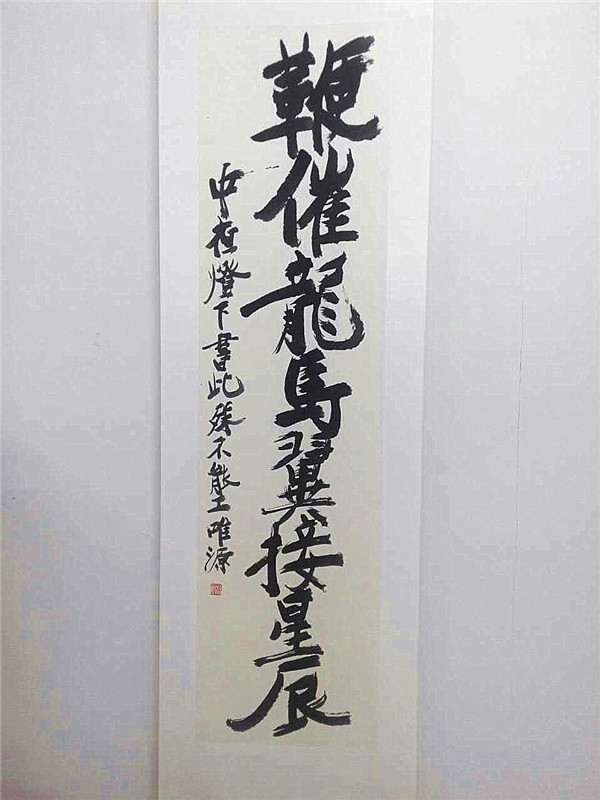 鞭催龍馬翼接星辰
中夜燈下書此殊不能工唯源